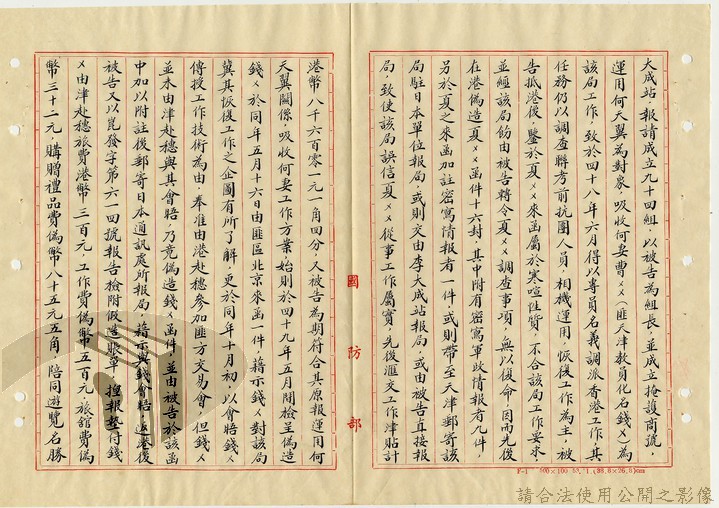 大成站，報請成立九十四組，以被告為組長，並成立掩護商號，
運用何天翼為對象，吸收何妻曹××（匪天津教員化名錢×）為
該局工作，致於四十八年六月得以專員名義調派香港工作，其
任務仍以調查聯考前抗團人員，相機運用，恢復工作為主，被
告抵港後，鑒於夏××來函屬於寒喧性質，不合該局工作要求
並經該局飭由被告轉令夏××調查事項，無以復命，因而先後
在港偽造夏××函件十六封，其中附有密寫軍政情報者八件，
另於夏之來函加註密寫情報者一件，或則帶至天津郵寄該
局駐日本單位報局，或則交由李大成站報局，或由被告直接報
局，致使該局誤信夏××從事工作屬實，先後滙交工作津貼計
港幣八千六百零一元一角四分，又被告為期符合其原報運用何
天翼關係，吸收何妻工作方案，始則於四十九年五月間檢呈偽造
錢×於同年五月十六日由匪區北京來函一件，藉示錢×對該局
冀其恢復工作之企圖有所了解，更於同年十月初，以會晤錢×
傳授工作技術為由，奉准由港赴穗參加匪方交易會，但錢×
並未由津赴穗與其會晤，乃竟偽造錢×函件，並由被告於該函
中加以附註後郵寄日本通訊處所報局，藉示與錢會晤，返港後
被告又以崑發字第六一四號報告檢附假造賬單，揑報墊付錢
×由津赴穗旅費港幣三百元，工作費偽幣五百元，旅舘費偽
幣三十二元，購贈禮品費偽幣八十五元五角，陪同遊覽名勝
國防部
請合法使用公開之影像